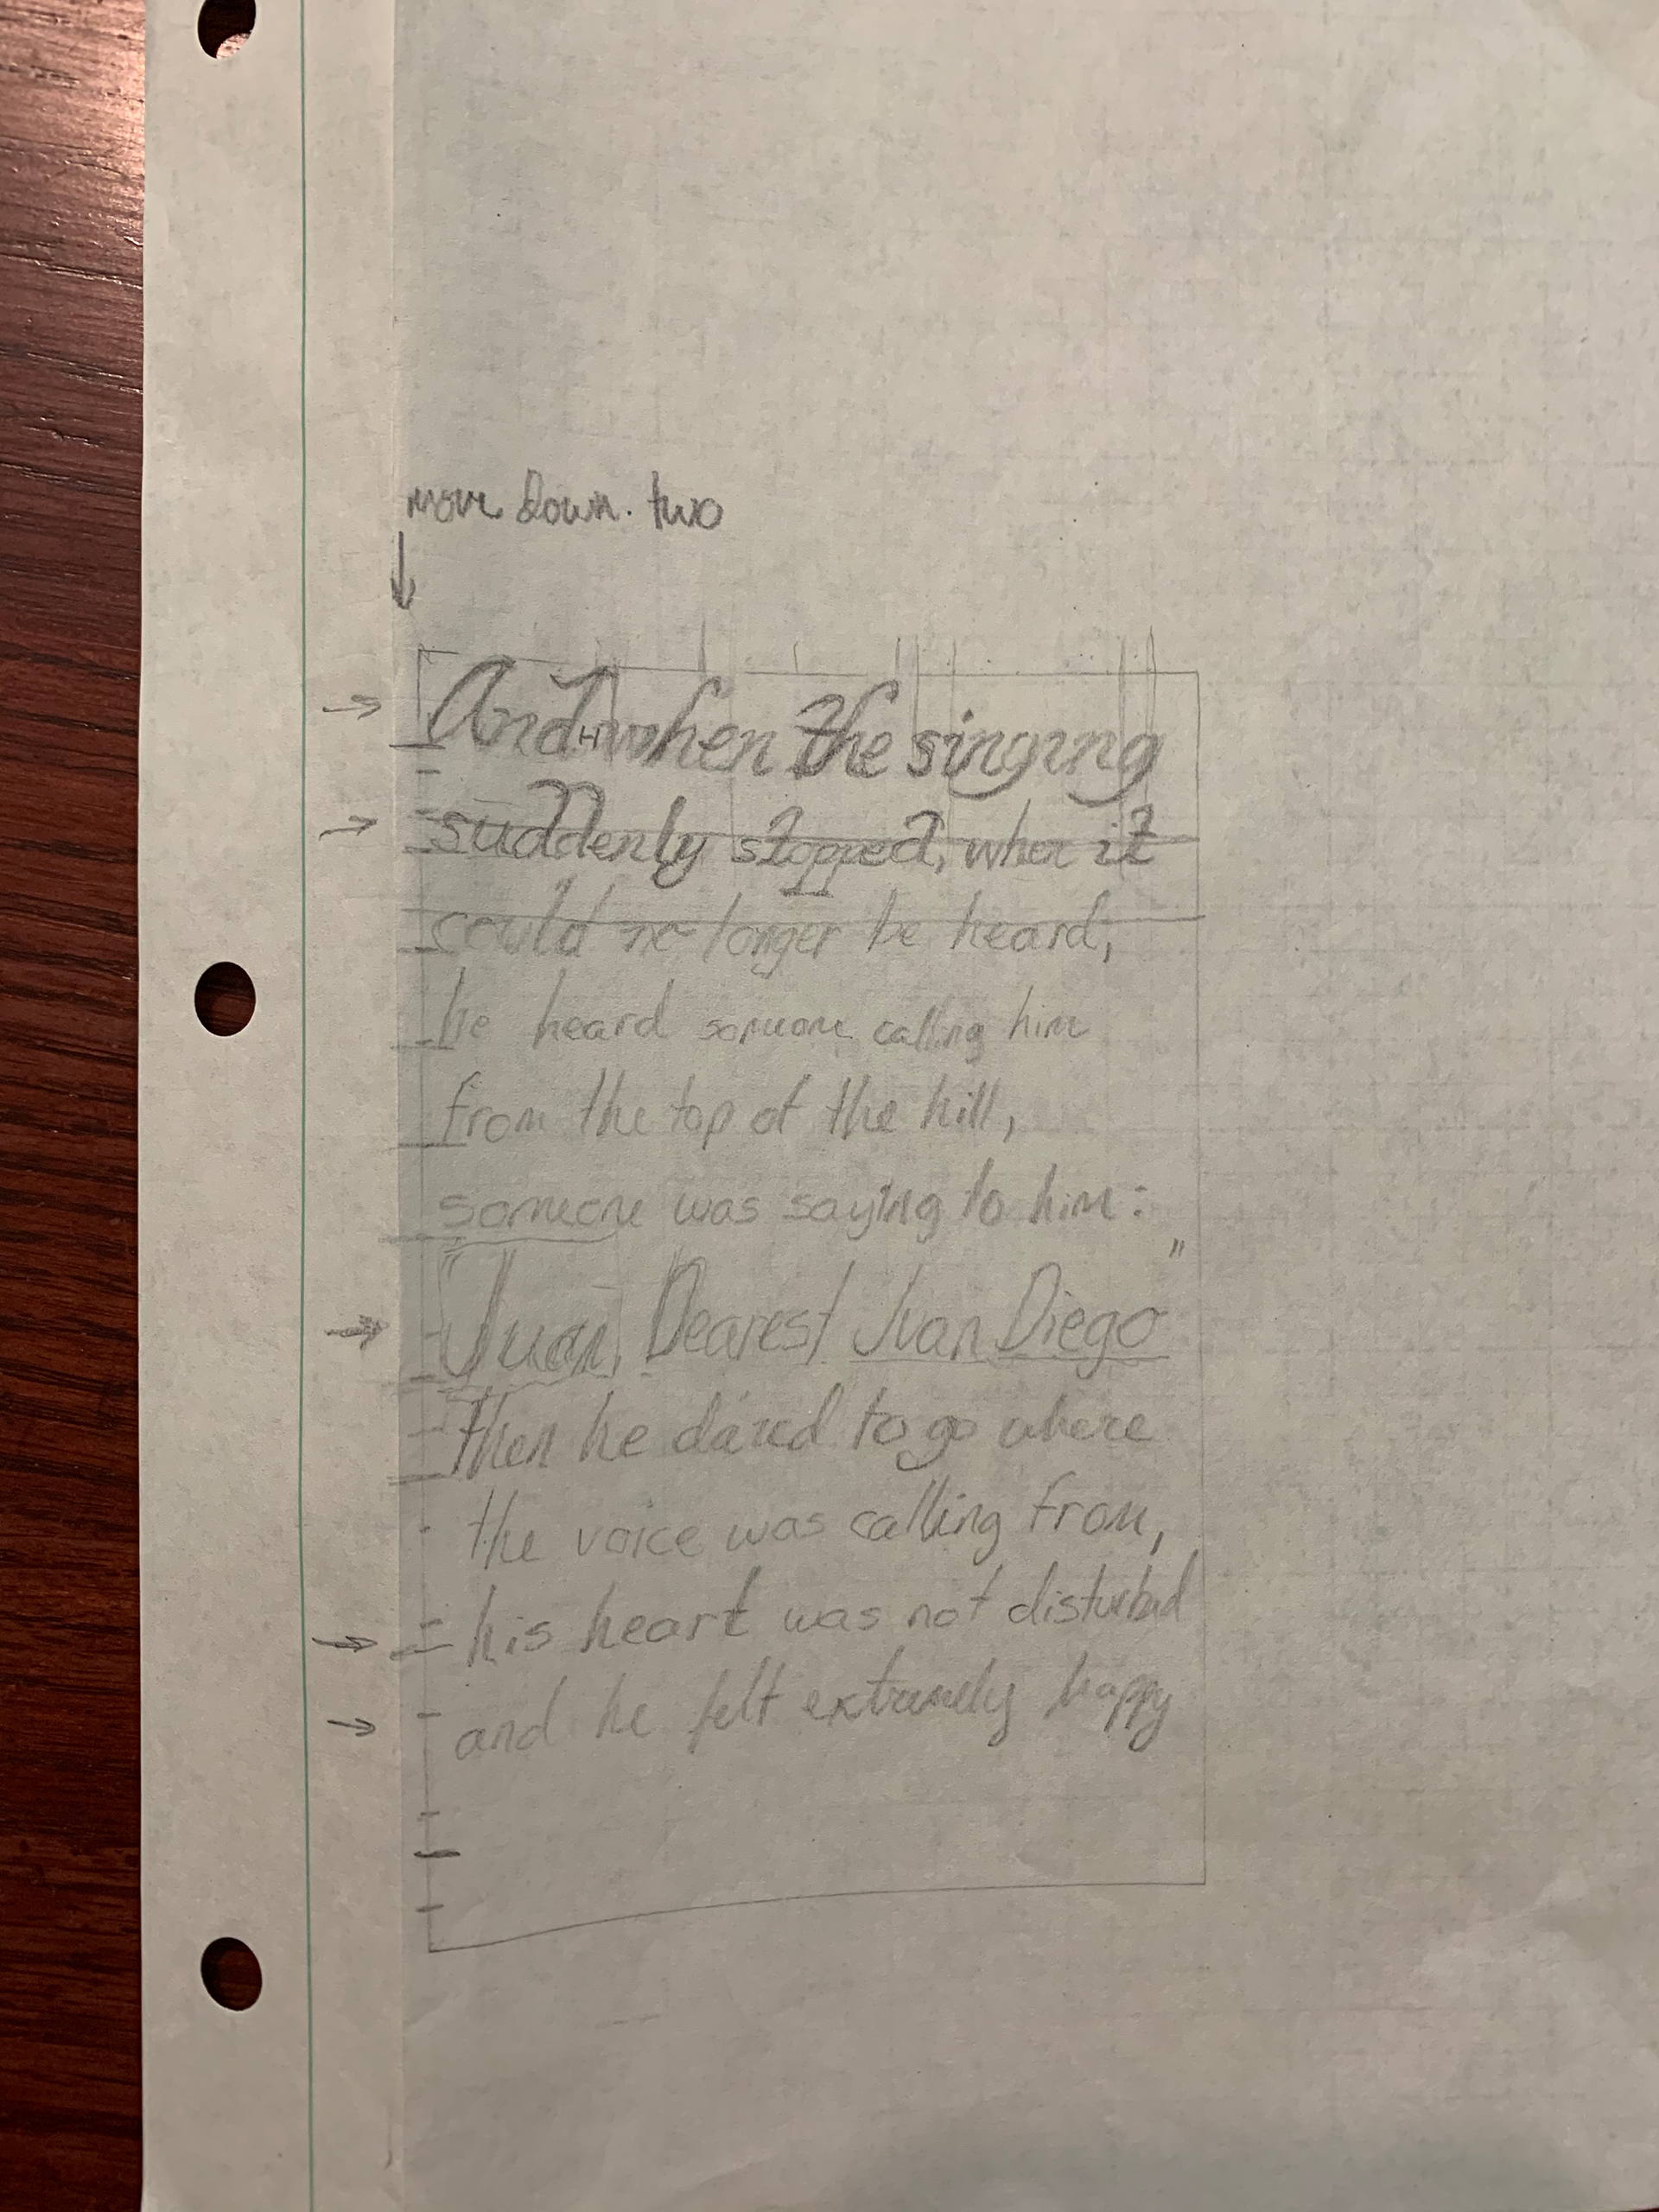 move down. two
And when the singing
suddenly stopped, when it
could no longer be heard,
he heard someone calling him
from the top of the hill,
someone was saying to him:
"Juan, Dearest Juan Diego"
then he dared to go where
the voice was calling from,
his heart was not disturbed
and he felt extremely happy